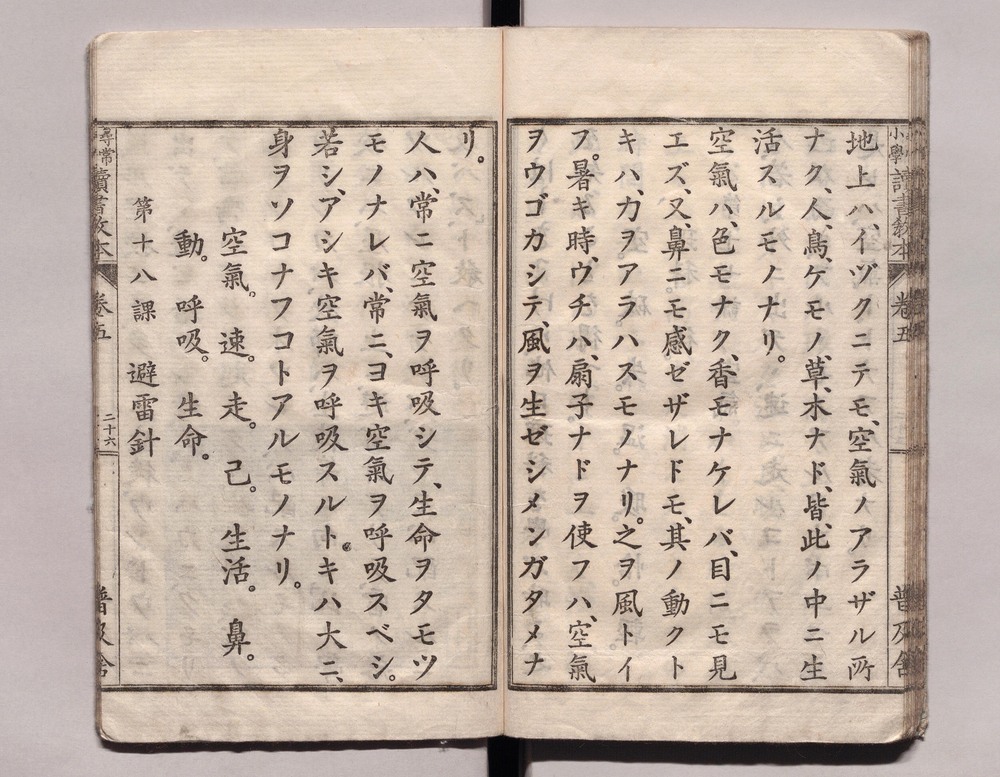 地上ハ、イヅクニテモ、空氣ノアラザル所
ナク、人、鳥、ケモノ、草、木ナド、皆、此ノ中ニ生
活スルモノナリ。
空氣ハ、色モナク、香モナケレバ、目ニモ見
エズ、又、鼻ニモ感ゼザレドモ、其ノ動クト
キハ、力ヲアラハスモノナリ。之ヲ風トイ
フ。暑キ時、ウチハ、扇子ナドヲ使フハ、空氣
ヲウゴカシテ、風ヲ生ゼシメンガタメナ
リ。
人ハ、常ニ空氣ヲ呼吸シテ、生命ヲタモツ
モノナレバ、常ニ、ヨキ空氣ヲ呼吸スベシ。
若シ、アシキ空氣ヲ呼吸スルトキハ大ニ、
身ヲソコナフコトアルモノナリ。
空氣。速。走。己。生活。鼻。
動。呼吸。生命。
第十八課 避雷針
小學讀書敎本 卷五 普及舍
尋常讀書敎本 卷五 二十六 普及舍